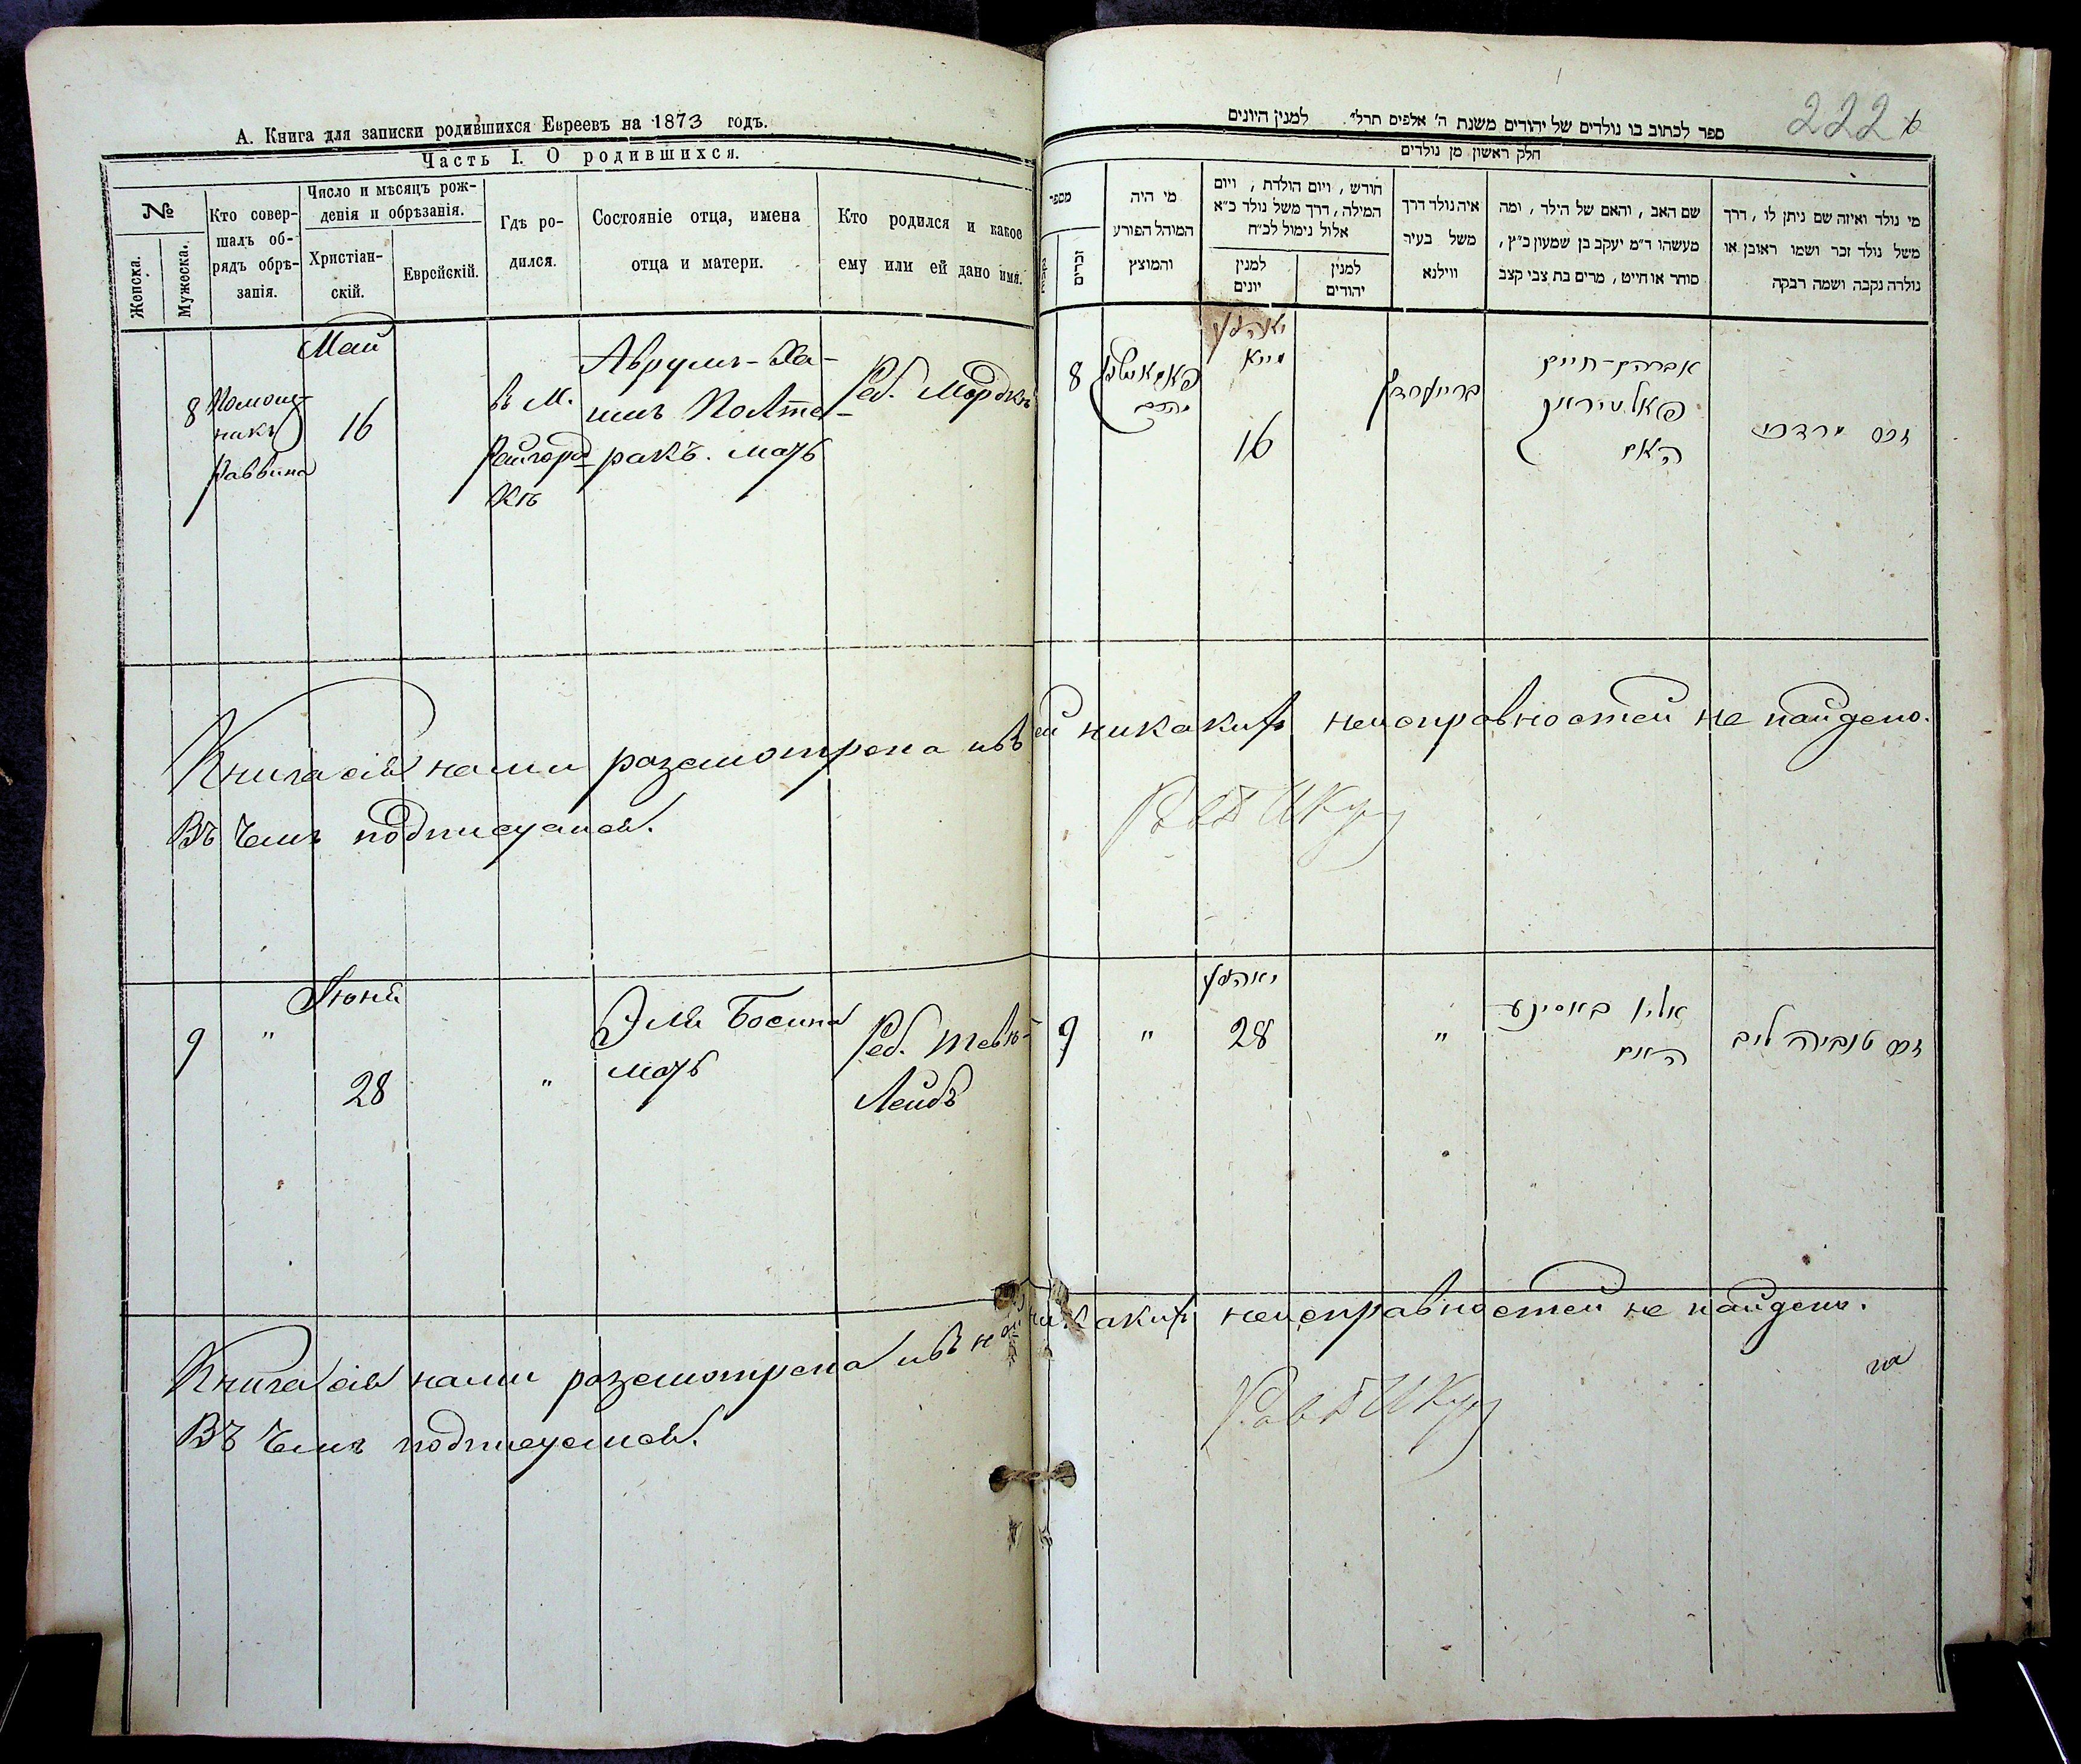 А. Книга для записки родившихся Евреевъ на 1873 годъ.
Часть I. О родившихся.
№
Женска.
Мужеска.
Кто совер-
шалъ об-
рядъ обрѣ-
занія.
Число и мѣсяцъ рож-
денія и обрѣзанія.
Христіан-
скій.
Еврейскій.
Гдѣ ро-
дился.
Состояніе отца, имена
отца и матери.
Кто родился и какое
ему или ей дано имя.
8
Помощ-
никъ
Раввина
Май
16
в М.
Райгород-
кѣ
Аврумъ-Ха-
имъ Полта-
ракъ. мать
Реб. Мордко
Книга сія нами разсмотрена и въ ней никакихъ неисправностей не найдено.
Въ чемъ подписуемся.
9
"
Іюнь
28
"
Эля Босина
мать
Реб.
Лейбъ
Книга сія нами разсмотрена и въ ней никакихъ неисправностей не найдено.
Въ чемъ подписуемся.
222
ספר לכתוב בו נולדים של יהודים משנת ה' אלפים תרל" למנין היונים
חלק ראשון מן נולדים
מספר
זכרים
מי היה
המוהל הפורע
והמוצץ
חודש, ויום הולדת, ויום
המילה, דרך משל נולד כ"א
אלול נימול לכ"ח
למנין
יונים
למנין
יהודים
איה נולד דרך
משל בעיר
ווילנא
שם האב, והאם של הילד, ומה
מעשהו ד"מ יעקב בן שמעון כ"ץ,
סוחר או חייט, מרים בת צבי קצב
מי נולד ואיזה שם ניתן לו, דרך
משל נולד זכר ושמו ראובן או
נולדה נקבה ושמה רבקה
8
מייא
16
אברהם-חיים
פאלטיראק
האם
זכר מרדכי
9
"
28
"
אלי באסינע
האם